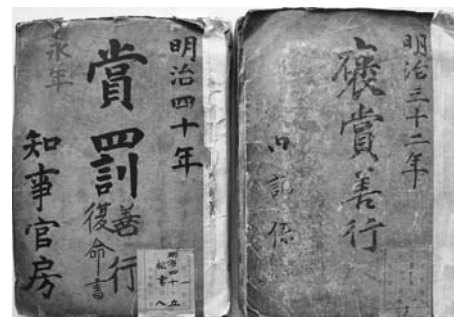 明治三十二年
褒賞善行
内記係
明治四十年
賞罰善行
復命書
永年
知事官房
明治四十